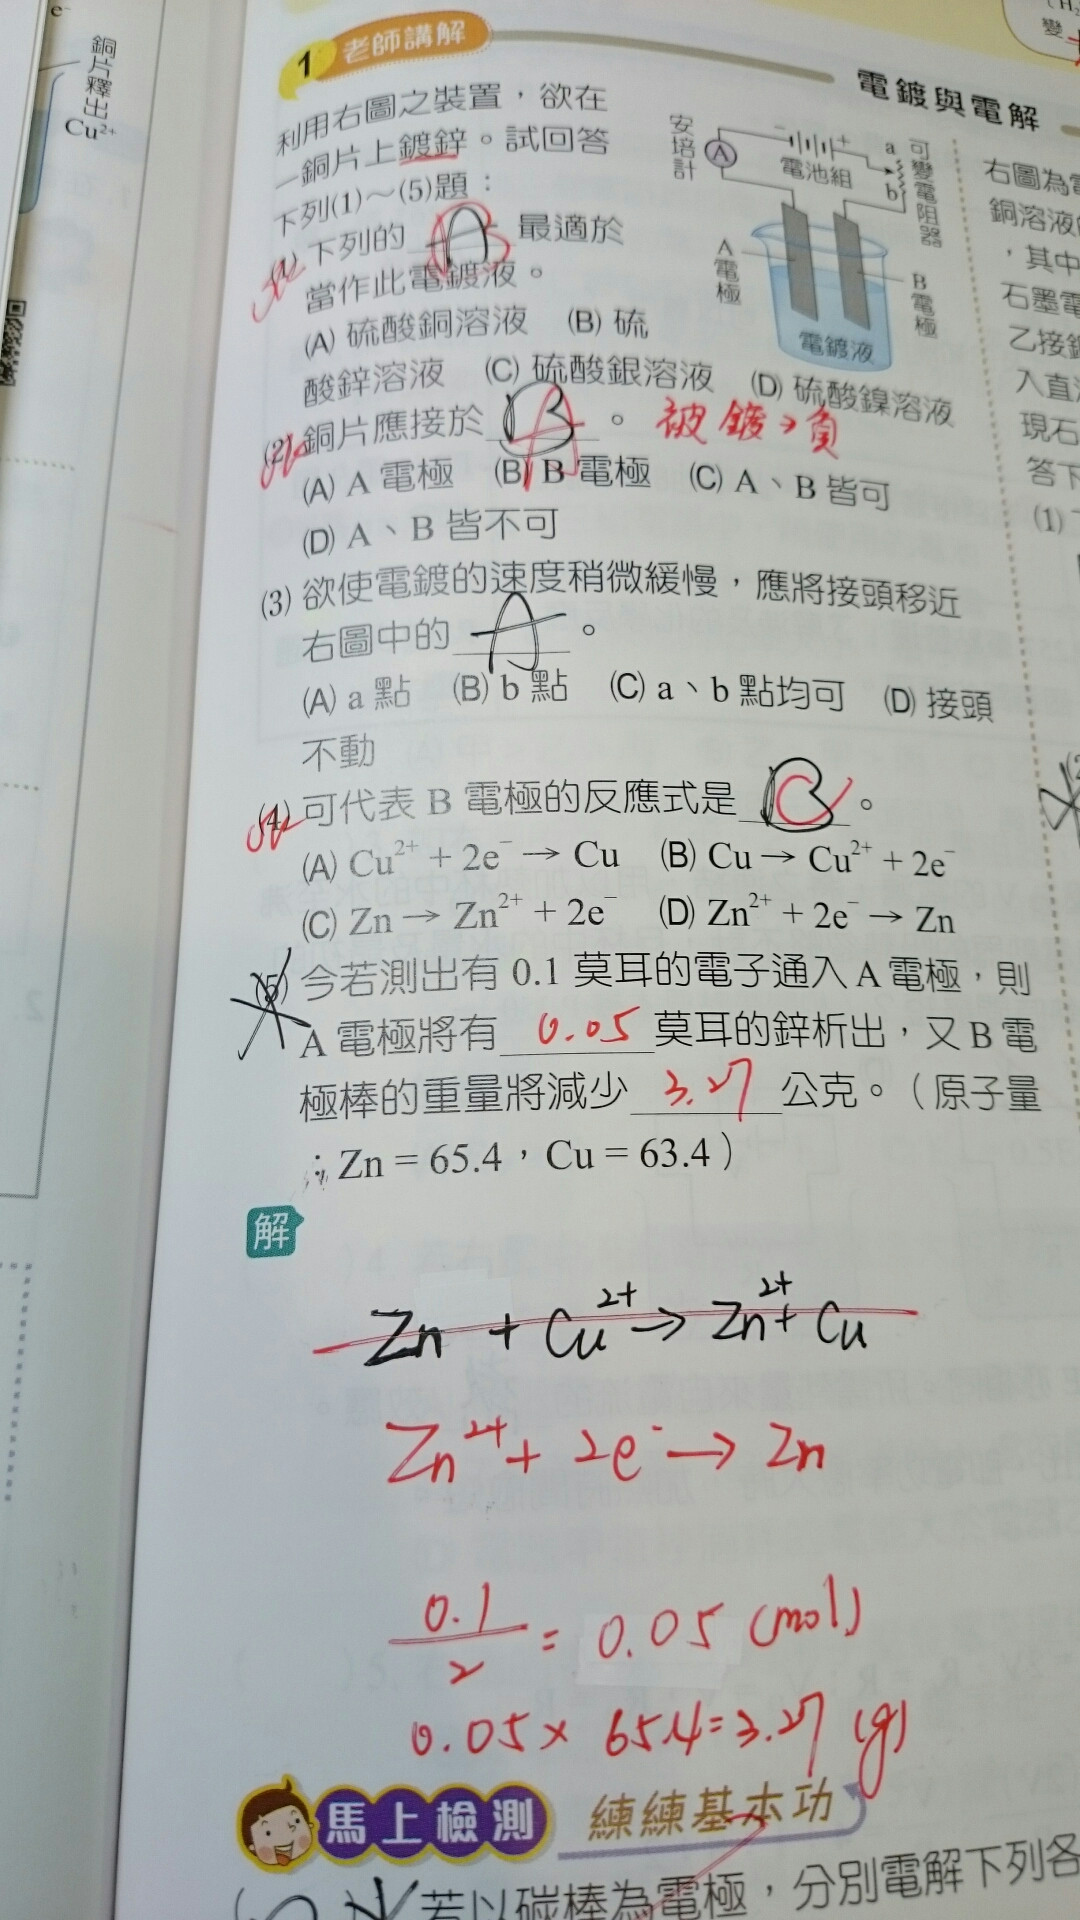 e⁻
銅片釋出
Cu²⁺
1 老師講解
電鍍與電解
利用右圖之裝置，欲在
一銅片上鍍鋅。試回答
下列(1)～(5)題：
(1) 下列的 B 最適於
當作此電鍍液。
(A) 硫酸銅溶液 (B) 硫
酸鋅溶液 (C) 硫酸銀溶液 (D) 硫酸鎳溶液
安培計
A
− +
電池組
a
b
可變電阻器
A電極
B電極
電鍍液
(2) 銅片應接於 A 。 被鍍→負
(A) A 電極 (B) B 電極 (C) A、B 皆可
(D) A、B 皆不可
(3) 欲使電鍍的速度稍微緩慢，應將接頭移近
右圖中的 A 。
(A) a 點 (B) b 點 (C) a、b 點均可 (D) 接頭
不動
(4) 可代表 B 電極的反應式是 C 。
(A) Cu²⁺ + 2e⁻ → Cu (B) Cu → Cu²⁺ + 2e⁻
(C) Zn → Zn²⁺ + 2e⁻ (D) Zn²⁺ + 2e⁻ → Zn
(5) 今若測出有 0.1 莫耳的電子通入 A 電極，則
A 電極將有 0.05 莫耳的鋅析出，又 B 電
極棒的重量將減少 3.27 公克。（原子量
：Zn = 65.4，Cu = 63.4）
解
Zn + Cu²⁺ → Zn²⁺ + Cu
Zn²⁺ + 2e⁻ → Zn
0.1/2 = 0.05 (mol)
0.05 × 65.4 = 3.27 (g)
馬上檢測 練練基本功
若以碳棒為電極，分別電解下列各
右圖為電
銅溶液
，其中
石墨電
乙接
入直
現石
答下
(1)